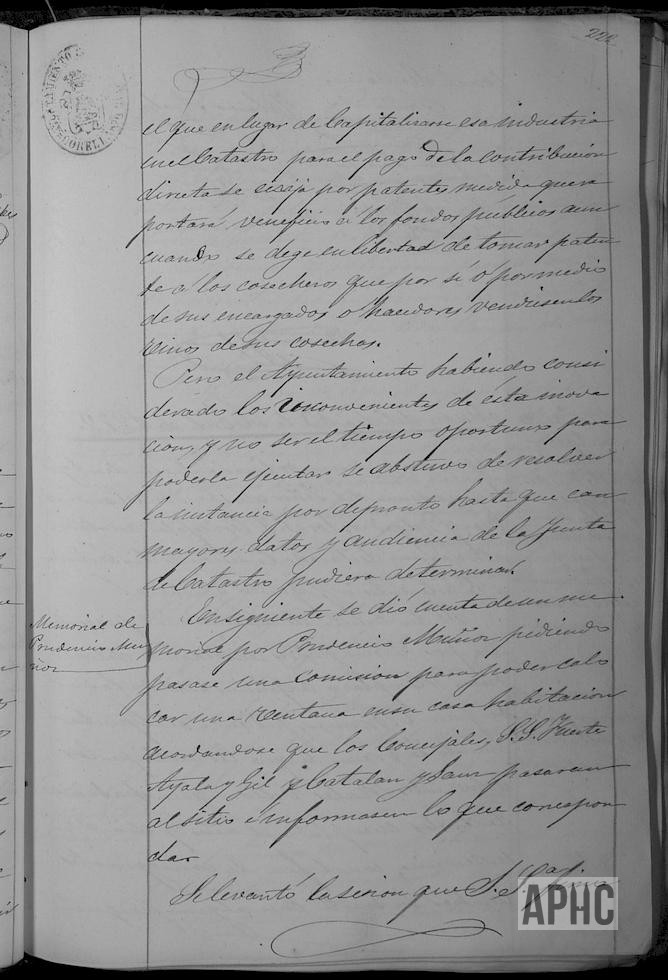 222
AYUNTAMIENTO
CORELLA
el que en lugar de Capitalisarse esa industria
en el Catastro para el pago de la contribucion
directa se exija por patentes medida que re
portará veneficio á los fondos públicos aun
cuando se dege en libertad de tomar paten
te á los cosecheros que por sí ó por medio
de sus encargados o hacedores vendiesen los
vinos de sus cosechas.
Pero el Ayuntamiento habiendo consi
derado los inconvenientes de ésta inova
cion, y no ser el tiempo oportuno para
poderla ejecutar se abstuvo de resolver
la instancia por depronto hasta que con
mayores datos y audiencia de la Junta
de Catastro pudiera determinar.
Memorial de
Prudencio Mu
ñoz
En siguiente se dió cuenta de un me
morial por Prudencio Muñoz pidiendo
pasase una comision para poder colo
car una ventana en su casa habitacion
acordandose que los Concejales, S.S. Fuerte
Ayala y Gil y Catalan y Sanz pasaran
al sitio é informasen lo que correspon
da.
Se levantó la sesion que S. S.as
APHC